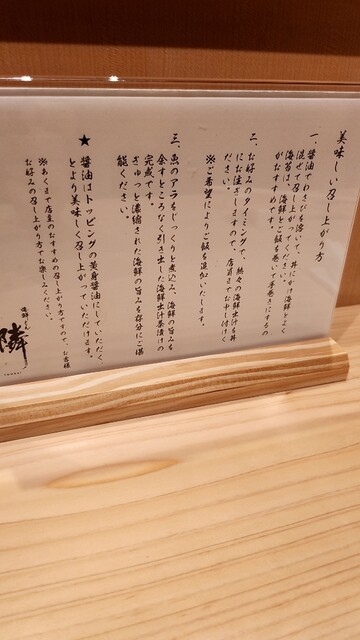 美味しい召し上がり方
一、醤油でわさびを溶いて、丼にかけ海鮮とよく
混ぜて召し上がってください。
海苔は、海鮮とご飯を巻いて手巻きにするの
がおすすめです。
二、お好みのタイミングで、熱々の海鮮出汁を丼
にお注ぎしますので、店員までお申し付けく
ださい。
※ご希望によりご飯も追加いたします。
三、魚のアラをじっくりと煮込み、海鮮の旨みを
余すところなく引き出した海鮮出汁茶漬けの
完成です。
ぎゅっと濃縮された海鮮の旨みを存分にご堪
能ください。
★ 醤油はトッピングの黄身醤油にしていただく
とより美味しく召し上がっていただけます。
※あくまで店主のおすすめの召し上がり方ですので、お客様
お好みの召し上がり方でお楽しみください。
海鮮どんぶり